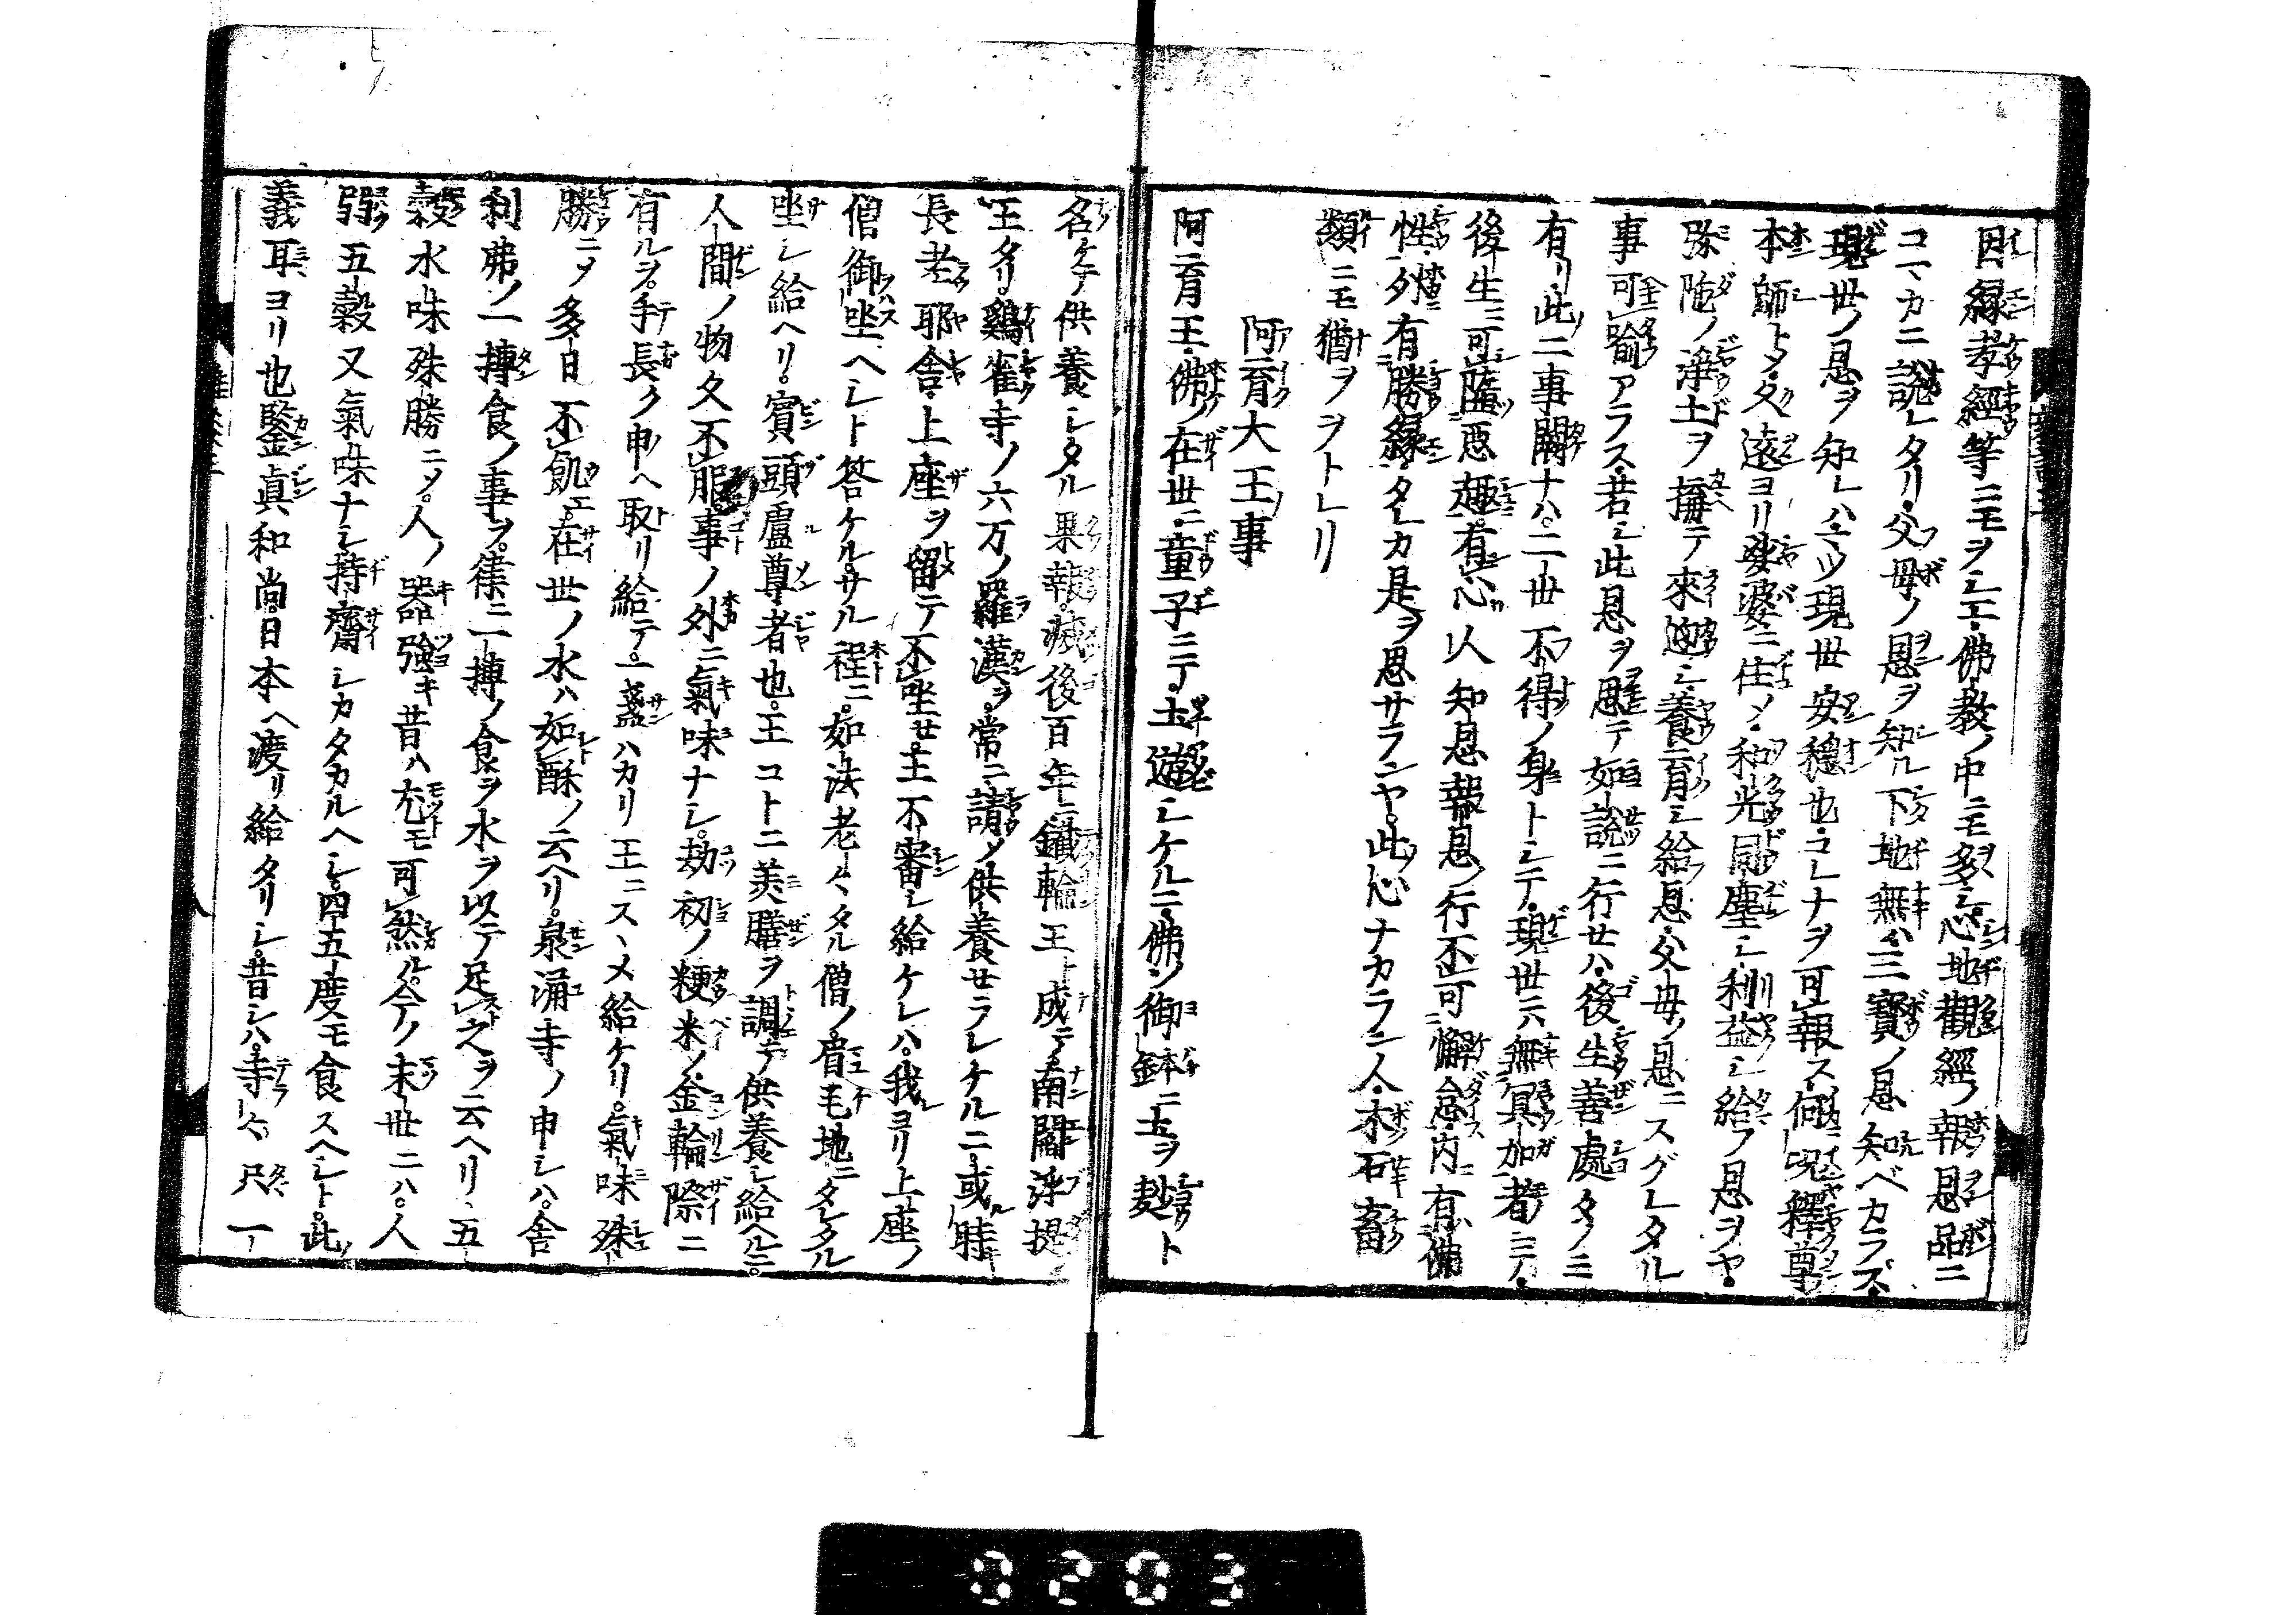 因縁孝經等ニモヲシエ佛教ノ中ニモ多シ心地觀經ノ報恩品ニ
コマカニ説レタリ父母ノ恩ヲ知ル下地無ハ三寶ノ恩知ベカラズ
現世ノ恩ヲ知レハマツ現世安穏也コレナヲ可報ス何况釋尊
本師トメ久遠ヨリ娑婆ニ住メ和光同塵シ利益シ給フ恩ヲヤ
弥陀ノ淨土ヲ搆テ來迎シ養育シ給恩父母ノ恩ニスグレタル
事可喩アラス若シ此恩ヲ思テ如説ニ行セハ後生善處タノミ
有リ此二事闕ナハ二世不得ノ身トシテ現世ニハ無冥加者ニテ
後生ニ可墮悪趣有心人知恩報恩ノ行不可懈怠内有佛
性外有勝縁タレカ是ヲ思サランヤ此心ナカラン人木石畜
類ニモ猶ヲヲトレリ
阿育大王事
阿育王佛ノ在世ニ童子ニテ土遊シケルニ佛ノ御鉢ニ土ヲ麨ト
名ケテ供養シタル果報滅後百年ニ鐵輪王ト成テ南閻浮提ノ
王タリ鷄雀寺ノ六万ノ羅漢ヲ常ニ請メ供養セラレケルニ或時
長老耶舎上座ヲ留テ不坐セ王不審シ給ケレハ我ヨリ上座ノ
僧御坐ヘシト答ケルサル程ニ如法老々タル僧ノ眉毛地ニタレタル
坐シ給ヘリ賓頭盧尊者也王コトニ美膳ヲ調テ供養シ給ヘルニ
人間ノ物久不服事ノ外ニ氣味ナシ劫初ノ粳米ノ金輪際ニ
有ルヲ手長ク申ヘ取リ給テ一盞ハカリ王ニスヽメ給ケリ氣味殊
勝ニメ多日不飢エ在世ノ水ハ如酥ノ云ヘリ泉涌寺ノ申シハ舎
利弗ノ一摶食ノ事ヲ僅ニ一摶ノ食ヲ水ヲ以テ足レリ之ヲ云ヘリ五
穀水味殊勝ニメ人ノ器強キ昔ハ尤モ可然ル今ノ末世ニハ人
弱五穀又氣味ナシ持齋シカタカルヘシ四五度モ食スヘシト此
義耳ヨリ也鑒眞和尚日本ヘ渡リ給タリシ昔シハ寺々只一
0203